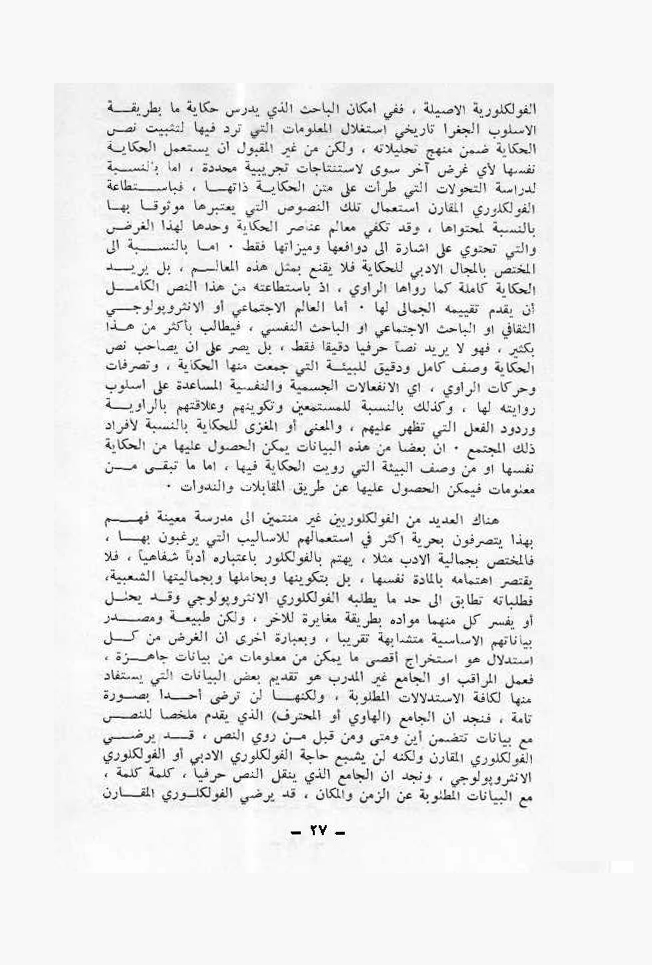 الفولكلورية الاصيلة ، ففي امكان الباحث الذي يدرس حكاية ما بطريقــة
الاسلوب الجغرا تاريخي استغلال المعلومات التي ترد فيها لتثبيت نص
الحكاية ضمن منهج تحليلاته ، ولكن من غير المقبول ان يستعمل الحكايــة
نفسها لأي غرض آخر سوى لاستنتاجات تجريبية محددة ، اما بالنســبة
لدراسة التحولات التي طرأت على متن الحكايــة ذاتهــا ، فباســتطاعة
الفولكلوري المقارن استعمال تلك النصوص التي يعتبرها موثوقــا بهــا
بالنسبة لمحتواها ، وقد تكفي معالم عناصر الحكاية وحدها لهذا الغرض
والتي تحتوي على اشارة الى دوافعها وميزاتها فقط . امــا بالنســبة الى
المختص بالمجال الادبي للحكاية فلا يقنع بمثل هذه المعالــم ، بل يريــد
الحكاية كاملة كما رواها الراوي ، اذ باستطاعته من هذا النص الكامــل
أن يقدم تقييمه الجمالى لها . أما العالم الاجتماعي أو الانثروبولوجــي
الثقافي او الباحث الاجتماعي او الباحث النفسي ، فيطالب بأكثر من هــذا
بكثير ، فهو لا يريد نصاً حرفيا دقيقا فقط ، بل يصر على ان يصاحب نص
الحكاية وصف كامل ودقيق للبيئــة التي جمعت منها الحكاية ، وتصرفات
وحركات الراوي ، اي الانفعالات الجسمية والنفسية المساعدة على اسلوب
روايته لها ، وكذلك بالنسبة للمستمعين وتكوينهم وعلاقتهم بالراويــة
وردود الفعل التي تظهر عليهم ، والمعنى أو المغزى للحكاية بالنسبة لأفراد
ذلك المجتمع . ان بعضا من هذه البيانات يمكن الحصول عليها من الحكاية
نفسها او من وصف البيئة التي رويت الحكاية فيها ، اما ما تبقــى مــن
معلومات فيمكن الحصول عليها عن طريق المقابلات والندوات .
هناك العديد من الفولكلوريين غير منتمين الى مدرسة معينة فهــم
بهذا يتصرفون بحرية اكثر في استعمالهم للاساليب التي يرغبون بهــا ،
فالمختص بجمالية الادب مثلا ، يهتم بالفولكلور باعتباره أدباً شفاهياً ، فلا
يقتصر اهتمامه بالمادة نفسها ، بل بتكوينها وبحاملها وبجماليتها الشعبية،
فطلباته تطابق الى حد ما يطلبه الفولكلوري الانثروبولوجي وقــد يحلــل
أو يفسر كل منهما مواده بطريقة مغايرة للآخر ، ولكن طبيعــة ومصــدر
بياناتهم الاساسية متشابهة تقريبا ، وبعبارة اخرى ان الغرض من كــل
استدلال هو استخراج أقصى ما يمكن من معلومات من بيانات جاهــزة ،
فعمل المراقب او الجامع غير المدرب هو تقديم بعض البيانات التي يستفاد
منها لكافة الاستدلالات المطلوبة ، ولكنهــا لن ترضى أحــدا بصــورة
تامة ، فنجد ان الجامع (الهاوي أو المحترف) الذي يقدم ملخصا للنــص
مع بيانات تتضمن أين ومتى ومن قبل مــن روي النص ، قــد يرضــي
الفولكلوري المقارن ولكنه لن يشبع حاجة الفولكلوري الادبي أو الفولكلوري
الانثروبولوجي ، ونجد ان الجامع الذي ينقل النص حرفيا ، كلمة كلمة ،
مع البيانات المطلوبة عن الزمن والمكان ، قد يرضي الفولكلــوري المقــارن
– ٢٧ –